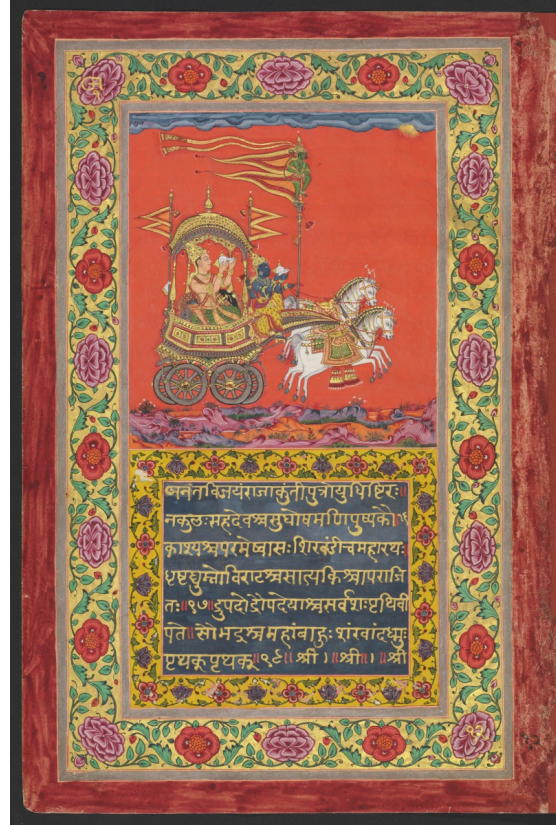 अनंतविजयंराजाकुंतीपुत्रोयुधिष्टिरः॥
नकुलःसहदेवश्चसुघोषमणिपुष्पकौ॥
काश्यश्चपरमेष्वासःशिखंडीचमहारथः
धृष्टद्युम्नोविराटश्चसात्यकिश्चापराजि
तः॥१७॥द्रुपदोद्रौपदेयाश्चसर्वशःपृथिवी
पते॥सौभद्रश्चमहांबाहुःशंखांदध्मुः
पृथक्पृथक्॥१८॥श्री।॥श्री॥।॥श्री